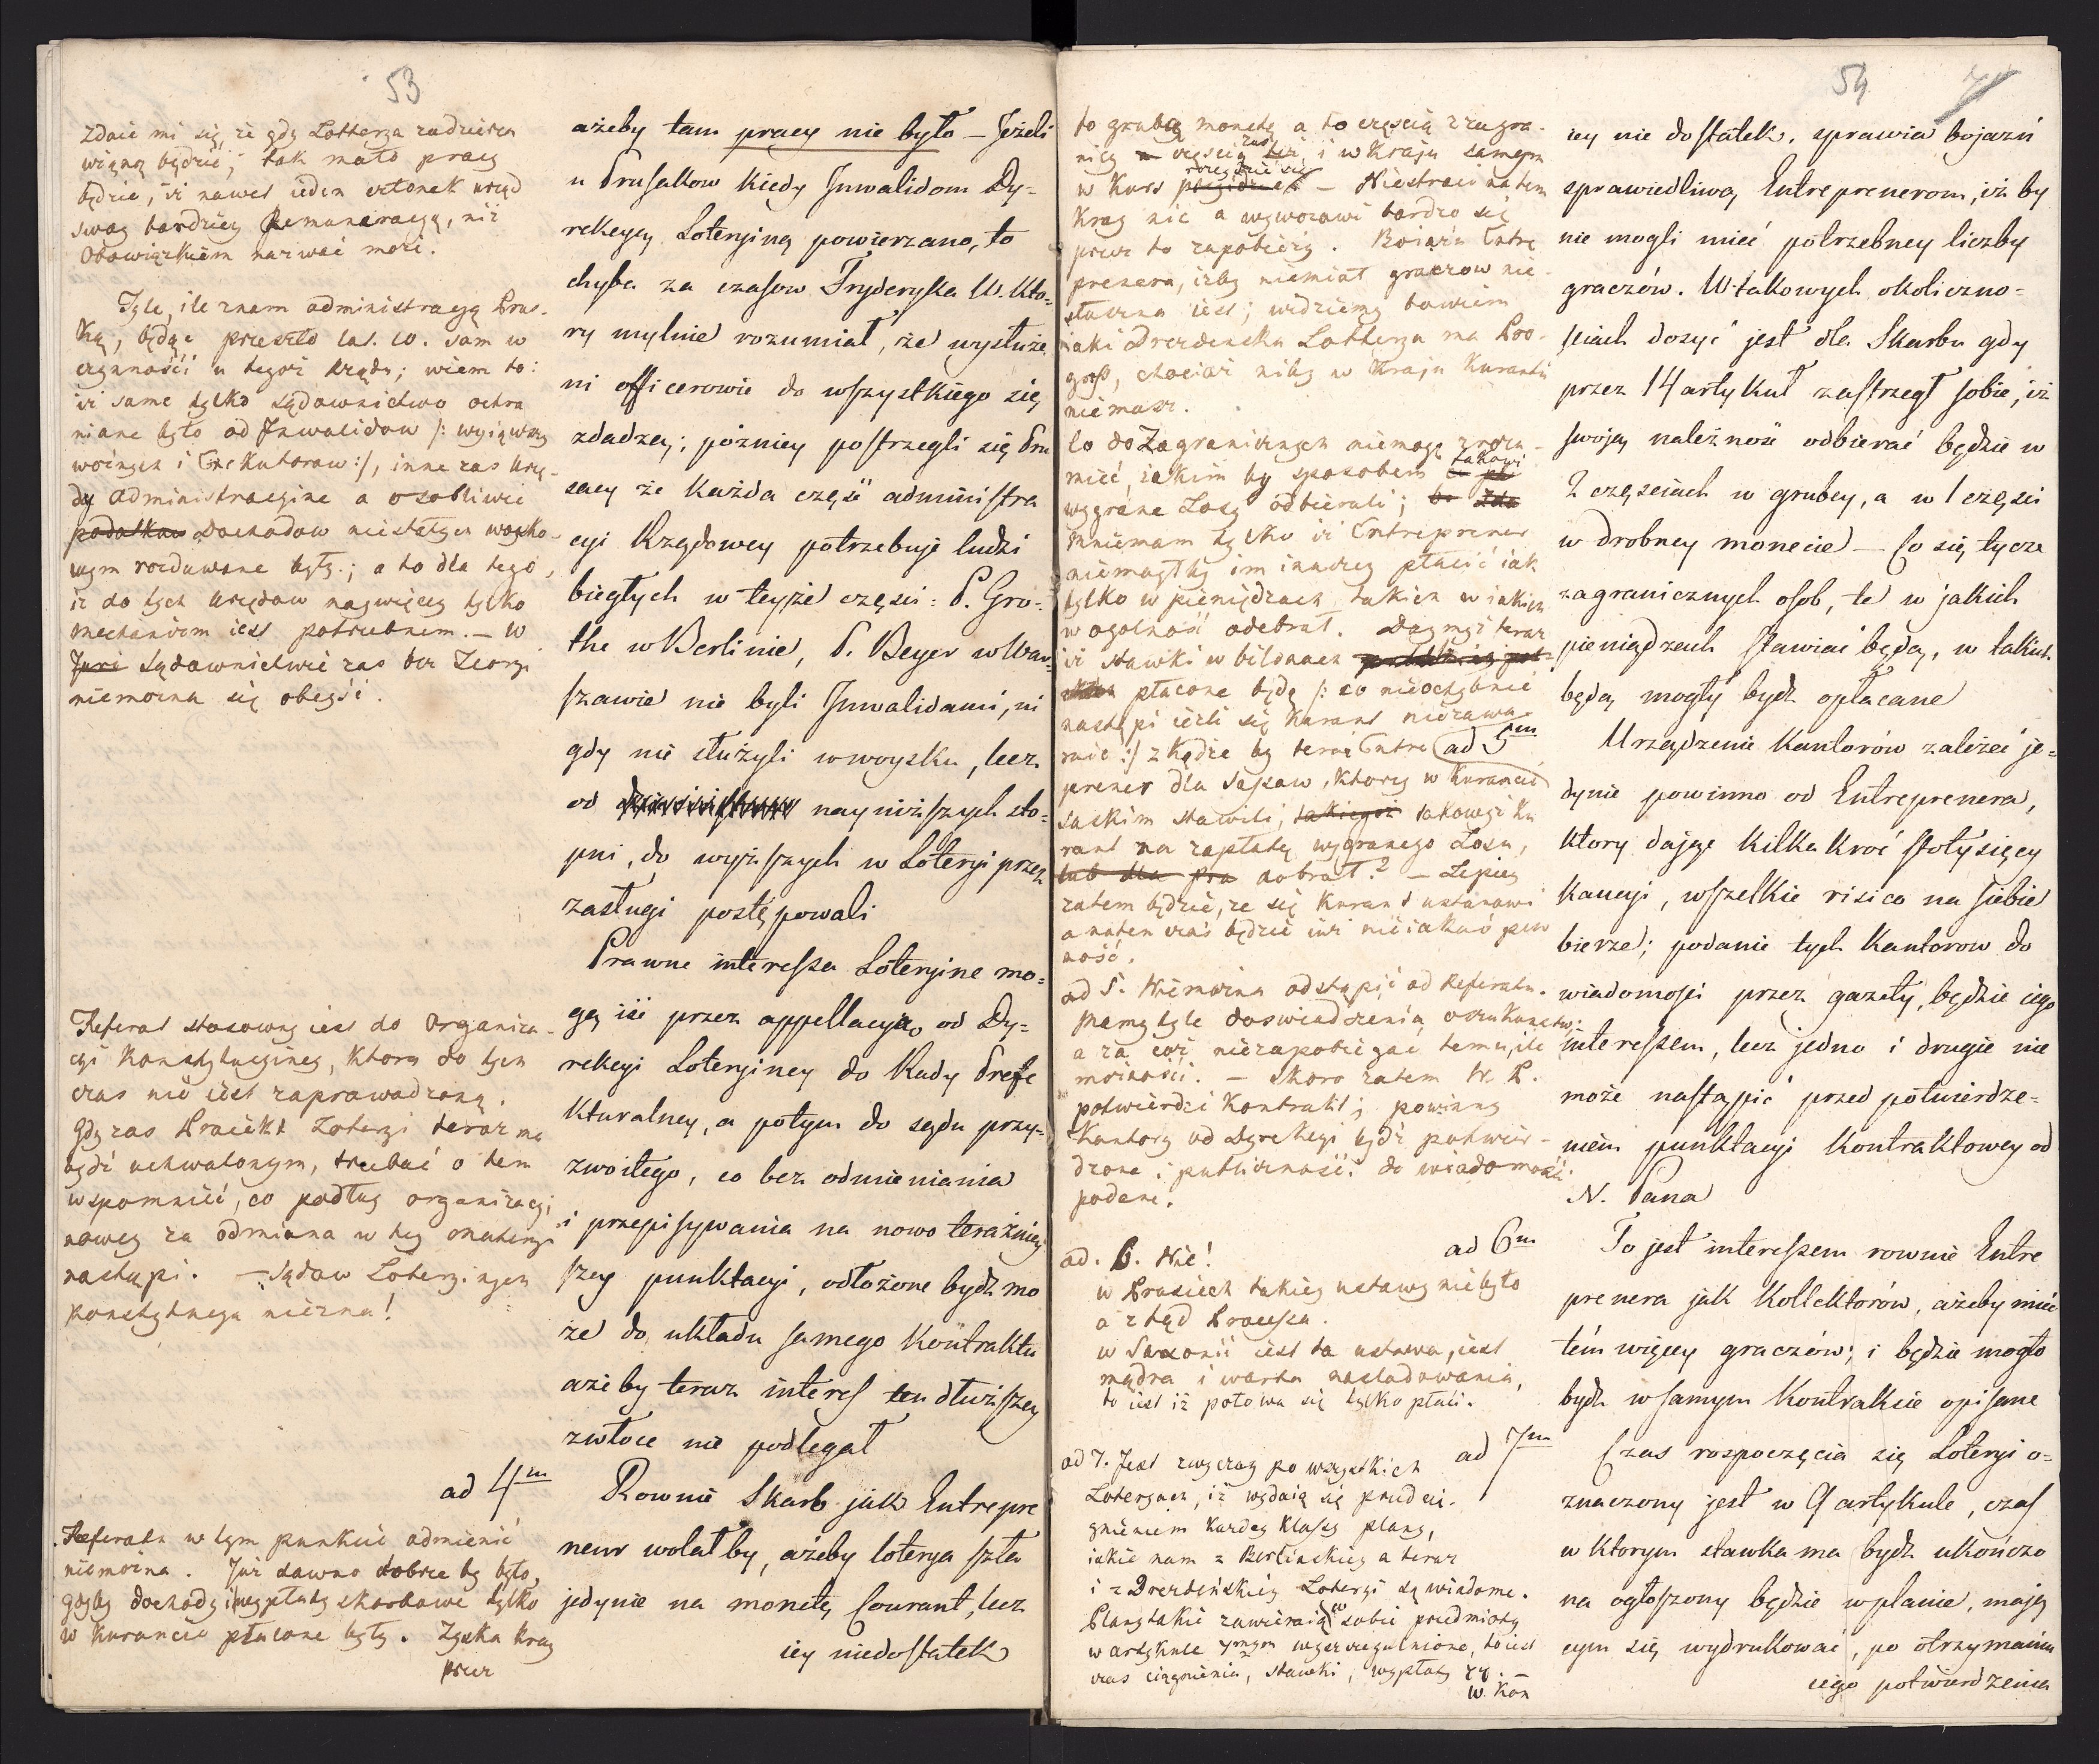 53
Zdaie mi się, że gdy Lotterya radzieren
wiązną będzie; tak mało pracy
będzie, iż nawet ieden członek urzęd
swoy bardziey Remuneracyą, niż
Obowiązkiem nazwać może.
Tyle, ile znam administracyą Prus-
ką, będąc przeszło lat. 10. sam w
czynności u tegoż Rządu; wiem to:
iż same tylko sądownictwo ochra
niane było od Inwalidow /: wyiąwszy
woźnych i Exekutorow :/, inne zas Urzę-
dy administracyine a osobliwie
podatkow Dochodow niestałych woysko-
wym rozdawane były.; a to dla tego,
iż do tych Urzędow naywięcey tylko
mechanizm iest potrzebnem. — W
Juri Sądownictwie zas bez Teoryi
niemożna się obeyść.
Referat stosowny iest do Organiza-
cyi Konstytucyiney, ktora do tych
czas nie iest zaprowadzoną.
Gdy zas Proiekt Loteryi teraz ma
bydź uchwalonym, trzebać o tem
wspomnieć, co podług organizacyi
nowey za odmiana w tey materyi
nastąpi. — Sądow Loteryinych
Konstytucya niezna!
ad 4m
Referatu w tym punkcie odmienić
niemożna. Już dawno dobrze by było,
gdyby dochody i wypłaty skarbowe tylko
w Kurancie płacone były. Zyska kray
przez
ażeby tam pracy nie było — Jeżeli
u Prusakow kiedy Inwalidom Dy-
rekcyą Loteryiną powierzano, to
chyba za czasow Fryderyka W. kto-
ry mylnie rozumiał, że wysłuże
ni officerowie do wszystkiego się
zdadzą; poźniey postrzegli się Pru
sacy że każda część administra
cyi Rządowey potrzebuje ludzi
biegłych w teyże części: P. Gro-
the w Berlinie, P. Beyer w War-
szawie nie byli Inwalidami, ni
gdy nie służyli w woysku, lecz
od nayniższych sto-
pni, do wyższych w Loteryi przez
zasługi postępowali
Prawne interessa Loteryine mo-
gą iść przez appellacyą od Dy-
rekcyi Loteryiney do Rady Prefe
kturalney, a potym do sądu przy-
zwoitego, co bez odmieniania
i przepisywania na nowo teraźniey
szey punktacyi, odłożone bydz mo
że do układu samego Kontraktu
ażeby teraz interes ten dłuższey
zwłoce nie podlegał
Rownie Skarb jak Entrepre
neur wolałby, ażeby loterya szła
jedynie na monetę Courant, lecz
iey niedostatek
54
to grubą monetę a to częścią z zagra-
nicy a częścią zas też, i w Kraju samym
w Kurs rozeydzie się — Niestraci na tem
Kray nic a wywozowi bardzo się
przez to zapobieży. Boiaźń Entre
prenera, iżby niemiał graczow nie-
słuszna iest; widziemy bowiem
iaki Drezdenska Lotterya ma Pro-
gress, chociaż niby w Kraju Kurantu
niemasz.
Co do Zagranicznych niemogę zrozu-
mieć, iakim by sposobem takowi
wygrane Losy odbierali;
mniemam tylko iż Entreprener
niemogłby im inaczey płacić iak
tylko w pieniądzach takich w iakich
w ogolność odebrał. Daymyż teraz
iż stawki w bilonach
płacone będą /: co nieochybnie
nastąpi ieżli się Kurant niezawa-
ruie :/ zkądże by teraz Entre
prener dla Sasow, ktorzy w Kurancie
saskim stawili, takiegoż takowyż Ku
rant na zapłatę wygranego Losu,
lub dla pra dobrał? — Lepiey
zatem będzie, że się Kurant ustanowi
a naten czas będzie iuż nieiakaś pew
ność.
ad 5m
ad 5. Niemożna odstąpić od Referatu.
Mamy tyle doswiadczenia oszukaństw;
a za coż niezapobiegać temu, ile
możności. — Skoro zatem N. P.
potwierdzi Kontrakt; powinny
Kantory od Dyrekcyi bydź potwier-
dzone i publiczności do wiadomości
podane.
ad 6m
ad. 6. Nie!
w Prusiech takiey ustawy niebyło
a ztąd Processa.
w Saxonii iest ta ustawa, iest
mądra i warta nasladowania,
to iest iż połowa się tylko płaci.
ad 7m
ad 7. Jest zwyczay po wszystkich
Loteryach, iż wydaią się przed cią-
gnieniem każdey klassy plany,
iakie nam z Berlinskiey a teraz
i z Drezdeńskiey Loteryi są wiadome.
Plany takie zawieraią w sobie przedmioty
w artykule 7mym wyszczegulnione, to iest
czas ciągnienia, stawki, wypłaty etc. —
W. Kon
iey nie dostatek, sprawia bojaźń
sprawiedliwą Entreprenerom, iż by
nie mogli mieć potrzebney liczby
graczów. W takowych okoliczno-
ściach dosyć jest dla Skarbu gdy
przez 14 artykuł zastrzegł sobie, iż
swoją należność odbierać będzie w
2 częściach w grubey, a w 1 części
w drobney monecie — Co się tycze
zagranicznych osob, te w jakich
pieniądzach stawiać będą, w takich
będą mogły bydz opłacane
Urządzenie Kantorów zależeć je-
dynie powinno od Entreprenera,
ktory dając kilka kroć sto tysięcy
kaucyi, wszelkie risico na siebie
bierze; podanie tych Kantorow do
wiadomości przez gazety, będzie iego
interessem, lecz jedno i drugie nie
może nastąpić przed potwierdze-
niem punktacyi Kontraktowey od
N. Pana
To jest interessem rownie Entre
prenera jak Kollektorów, ażeby mieć
tém więcey graczów; i będzie mogło
bydz w samym Kontrakcie opisane
Czas rozpoczęcia się Loteryi o-
znaczony jest w 9 artykule, czas
w ktorym stawka ma bydz ukończo
na ogłoszony będzie w planie, mają
cym się wydrukować, po otrzymaniu
iego potwierdzenia